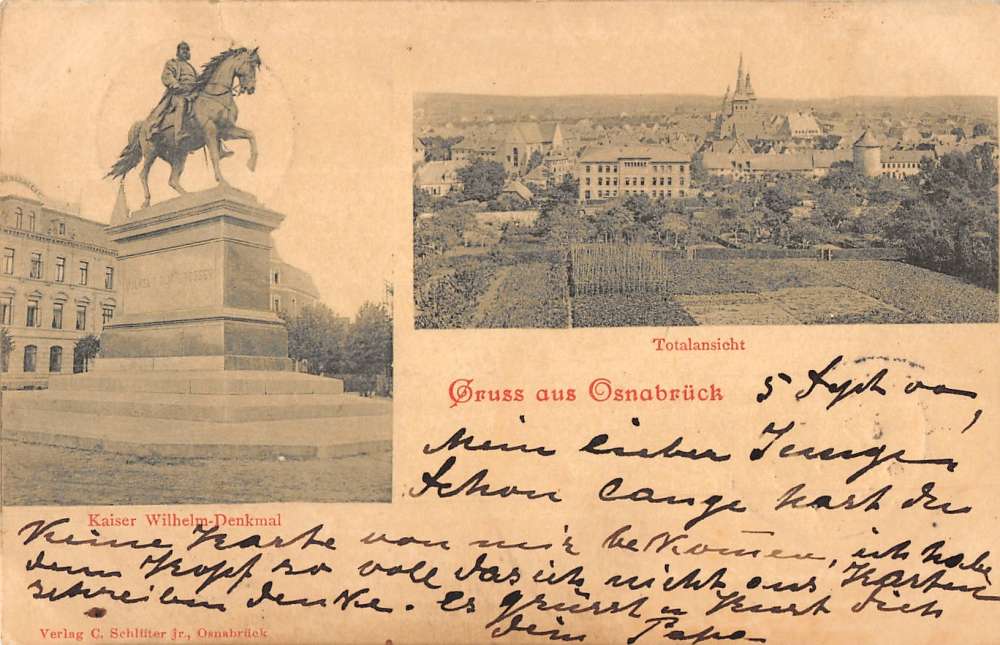 Totalansicht
Gruss aus Osnabrück
5 Sept 00,
Mein lieber Junge,
Schon lange hast du
Kaiser Wilhelm-Denkmal
Keine Karte von mir bekom̅en, ich habe
den Kopf so voll das ich nicht ans Karten
schreiben denke. es grüsst u Küsst dich
dein Papa
Verlag C. Schlüter jr., Osnabrück